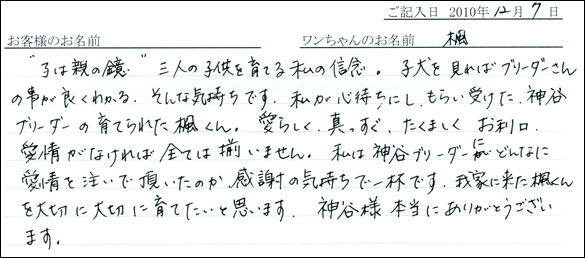 ご記入日 2010年 12月 7日
お客様のお名前 ワンちゃんのお名前 楓
"子は親の鏡" 三人の子供を育てる私の信念。子犬を見ればブリーダーさん
の事が良くわかる。そんな気持ちです。私が心待ちにし、もらい受けた、神谷
ブリーダーの育てられた楓くん。愛らしく、真っすぐ、たくましく お利口、
愛情がなければ全ては揃いません。私は神谷ブリーダーにどんなに
愛情を注いで頂いたのか感謝の気持ちで一杯です。我家に来た楓くん
を大切に大切に育てたいと思います。神谷様本当にありがとうござい
ます。